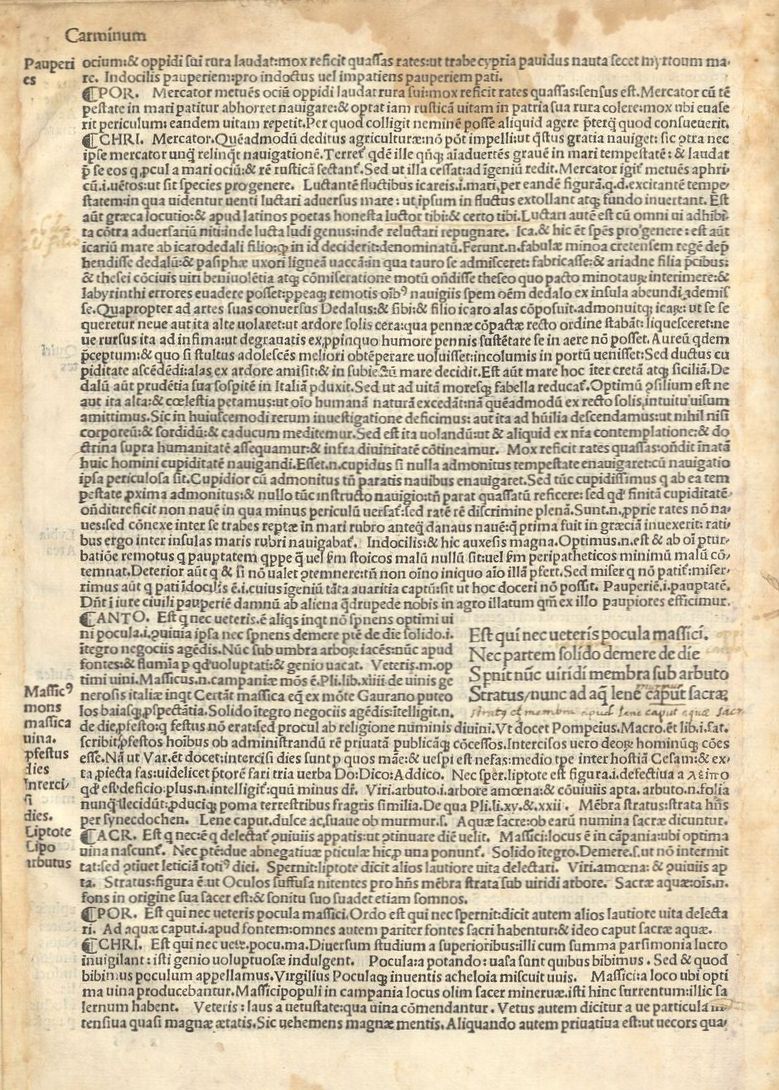 Carminum
Pauperi
es
ocium:& oppidi sui rura laudat:mox reficit quassas rates:ut trabe cypria pauidus nauta secet myrtoum ma-
re. Indocilis pauperiem:pro indoctus uel impatiens pauperiem pati.
¶POR. Mercator metuẽs ociũ oppidi laudat rura sui:mox reficit rates quassas:sensus est. Mercator cũ tẽ
pestate in mari patitur abhorret nauigare:& optat iam rusticã uitam in patria sua rura colere:mox ubi euase
rit periculum: eandem uitam repetit. Per quod colligit neminẽ posse aliquid agere p̃terq̃ quod consueuerit.
¶CHRI. Mercator. Quẽadmodũ deditus agriculturæ:nõ põt impelli:ut q̃stus gratia nauiget: sic ꝯtra nec
ipse mercator unq̃ relinq̃t nauigationẽ. Terret᷒ qdẽ ille qñq; aĩaduertẽs grauẽ in mari tempestatẽ: & laudat
p̃ se eos q ꝓcul a mari ociũ:& rẽ rusticã sectant᷒. Sed ut illa cessat:ad ĩgeniũ redit. Mercator igit᷒ metuẽs aphri-
cũ.i.uẽtos:ut sit species pro genere. Luctantẽ fluctibus icareis.i.mari,per eandẽ figurã.q.d.excitantẽ tempe-
statem:in qua uidentur uenti luctari aduersus mare: ut ipsum in fluctus extollant atq; fundo inuertant. Est
aũt græca locutio:& apud latinos poetas honesta luctor tibi:& certo tibi. Luctari autẽ est cũ omni ui adhibi-
ta cõtra aduersariũ niti:inde lucta ludi genus:inde reluctari repugnare. Ica.& hic ẽt spẽs pro'genere: est aũt
icariũ mare ab icaro dedali filio:q in id deciderit:denominatũ. Ferunt.n.fabulæ minoa cretensem regẽ dep̃
hendisse dedalũ:& pasiphæ uxori ligneã uaccã:in qua tauro se admisceret: fabricasse:& ariadne filia p̃cibus;
& thesei cõciuis uiri beniuolẽtia atq; cõmiseratione motũ oñdisse theseo quo pacto minotaurũ interimere:&
labyrinthi errores euadere posset:ꝓpeaq; remotis oĩb᷒ nauigiis spem oẽm dedalo ex insula abeundi ademis
se. Quapropter ad artes suas conuersus Dedalus:& sibi:& filio icaro alas cõposuit.admonuitq; icarũ: ut se se
queretur neue aut ita alte uolaret:ut ardore solis cera:qua pennæ cõpactæ recto ordine stabãt: liquesceret:ne
ue rursus ita ad infima:ut degrauatis ex ꝓpinquo humore pennis sustẽtare se in aere nõ posset. Aureũ qdem
p̃ceptum:& quo si stultus adolescẽs meliori obtẽperare uoluisset:incolumis in portũ uenisset: Sed ductus cu
piditate ascẽdẽdi:alas ex ardore amisit:& in subiectũ mare decidit. Est aũt mare hoc iter cretã atq; siciliã. De
dalũ aũt prudẽtia sua sospitẽ in Italiã pduxit. Sed ut ad uitã moresq; fabella reducat᷒. Optimũ ꝯsilium est ne
aut ita alta:& cœlestia petamus:ut oĩo humanã naturã excedãt:nã quẽadmodũ ex recto solis,intuitu'uisum
amittimus. Sic in huiuscemodi rerum inuestigatione deficimus: aut ita ad hũilia descendamus:ut nihil nisi
corporeũ:& sordidũ:& caducum meditemur. Sed est ita uolandũ:ut & aliquid ex nr̃a contemplatione:& do
ctrina supra humanitatẽ assequamur:& infra diuinitatẽ cõtineamur. Mox reficit rates quassas:oñdit ĩnatã
huic homini cupiditatẽ nauigandi. Esset.n.cupidus si nulla admonitus tempestate enauigaret:cũ nauigatio
ipsa periculosa sit. Cupidior cũ admonitus tñ paratis nauibus enauigaret. Sed tũc cupidissimus q ab ea tem
pestate ꝓxima admonitus:& nullo tũc instructo nauigio:tñ parat quassatũ reficere: sed qd᷒ finitã cupiditatẽ-
oñdit:reficit non nauẽ in qua minus periculũ uersat᷒:sed ratẽ rẽ discrimine plenã. Sunt.n.ꝓprie rates nõ na-
ues:sed cõnexe inter se trabes reptæ in mari rubro anteq̃ danaus nauẽ:q̃ prima fuit in græciã inuexerit: rati-
bus ergo inter insulas maris rubri nauigabat᷒. Indocilis:& hic auxesis magna. Optimus.n.est & ab oĩ ptur-
batiõe remotus q pauptatem qppe q̃ uel s̃m stoicos malũ nullũ sit:uel s̃m peripatheticos minimũ malũ cõ-
temnat. Deterior aũt q & si nõ ualet ꝯtemnere:tñ non oĩno iniquo aĩo illã pfert. Sed miser q nõ patit᷒:miser-
rimus aũt q pati ĩdocilis ẽ.i.cuius ingeniũ tãta auaritia captũ:sit ut hoc doceri nõ possit. Pauperiẽ.i.pauptatẽ.
Dñt ĩ iure ciuili pauperiẽ damnũ ab aliena q̃drupede nobis in agro illatum qm̃ ex illo paupiores efficimur.
¶ANTO. Est q nec ueteris.ẽ aliqs inqt nõ spñens optimi ui
ni pocula.i.ꝯuiuia ipsa nec spñens demere ptẽ de die solido.i.
ĩtegro negociis agẽdis. Nũc sub umbra arboȝ iacẽs:nũc apud
fontes:& flumĩa p qd᷒ uoluptati:& genio uacat. Veteris.m.op
timi uini. Massicus.n.campaniæ mõs ẽ. Pli.lib.xiiii.de uinis ge
nerosis italiæ inqt Certãt massica eq̃ ex mõte Gaurano puteo
los baiasq; ꝓspectãtia. Solido ĩtegro negociis agẽdis:ĩtelligit.n.
Est qui nec ueteris pocula massici.
Nec partem solido demere de die
Spnit nũc uiridi membra sub arbuto
Stratus/nunc ad aq̃ lenẽ caput sacræ
Massic᷒
mons
massica
uina.
pfestus
dies
Interci-
si
dies.
Liptote
Lipo
arbutus
de die,pfesto:q festus nõ erat:sed procul ab religione numinis diuini. Vt docet Pompeius. Macro.ẽt lib.i.sat.
scribit,pfestos hoĩbus ob administrandũ rẽ priuatã publicãq; cõcessos. Intercisos uero deoȝ hominũq; cões
esse. Nã ut Var.ẽt docet:intercisi dies sunt p quos mãe:& uespi est nefas:medio tpe inter hostiã Cesam:& ex-
ta ꝓiecta fas:uidelicet p̃torẽ fari tria uerba Do:Dico:Addico. Nec sper.liptote est figura.i.defectiua a λείπω
qd᷒ est deficio:plus.n.intelligit᷒:quũ minus dr̃. Viri.arbuto.i.arbore amœna:& cõuiuiis apta. arbuto.n.folia
nunq̃ decidũt:ꝓducitq; poma terrestribus fragris similia. De qua Pli.li.xv.& xxii. Mẽbra stratus:strata hñs
per synecdochen. Lene caput.dulce ac,suaue ob murmur.s. Aquæ sacre:ob earũ numina sacræ dicuntur.
¶ACR. Est q nec:ẽ q delectat᷒ ꝯuiuiis appatis:ut ꝯtinuare diẽ uelit. Massici:locus ẽ in cãpania:ubi optima
uina nascunt᷒. Nec ptẽ:due abnegatiuæ pticulæ hic,p una ponunt᷒. Solido ĩtegro. Demere.s.ut nõ intermit
tat:sed ꝯtinuet leticiã toti᷒ diei. Spernit:liptote dicit alios lautiore uita delectari. Viri.amœna:& ꝯuiuiis ap
ta. Stratus:figura ẽ:ut Oculos suffusa nitentes pro hñs mẽbra strata sub uiridi arbore. Sacræ aquæ:oĩs.n.
fons in origine sua sacer est:& sonitu suo suadet etiam somnos.
¶POR. Est qui nec ueteris pocula massici. Ordo est qui nec spernit:dicit autem alios lautiore uita delecta
ri. Ad aquæ caput.i.apud fontem:omnes autem pariter fontes sacri habentur:& ideo caput sacræ aquæ.
¶CHRI. Est qui nec uete.pocu.ma. Diuersum studium a superioribus:illi cum summa parsimonia lucro
inuigilant: isti genio uoluptuosæ indulgent. Pocula:a potando: uasa sunt quibus bibimus. Sed & quod
bibimus poculum appellamus. Virgilius Poculaq; inuentis acheloia miscuit uuis. Massici:a loco ubi opti
ma uina producebantur. Massici populi in campania locus olim sacer mineruæ.isti hinc surrentum:illic sa
lernum habent. Veteris: laus a uetustate:qua uina cõmendantur. Vetus autem dicitur a ue particula in-
tensiua quasi magnæ ætatis. Sic uehemens magnæ mentis. Aliquando autem priuatiua est:ut uecors qua-